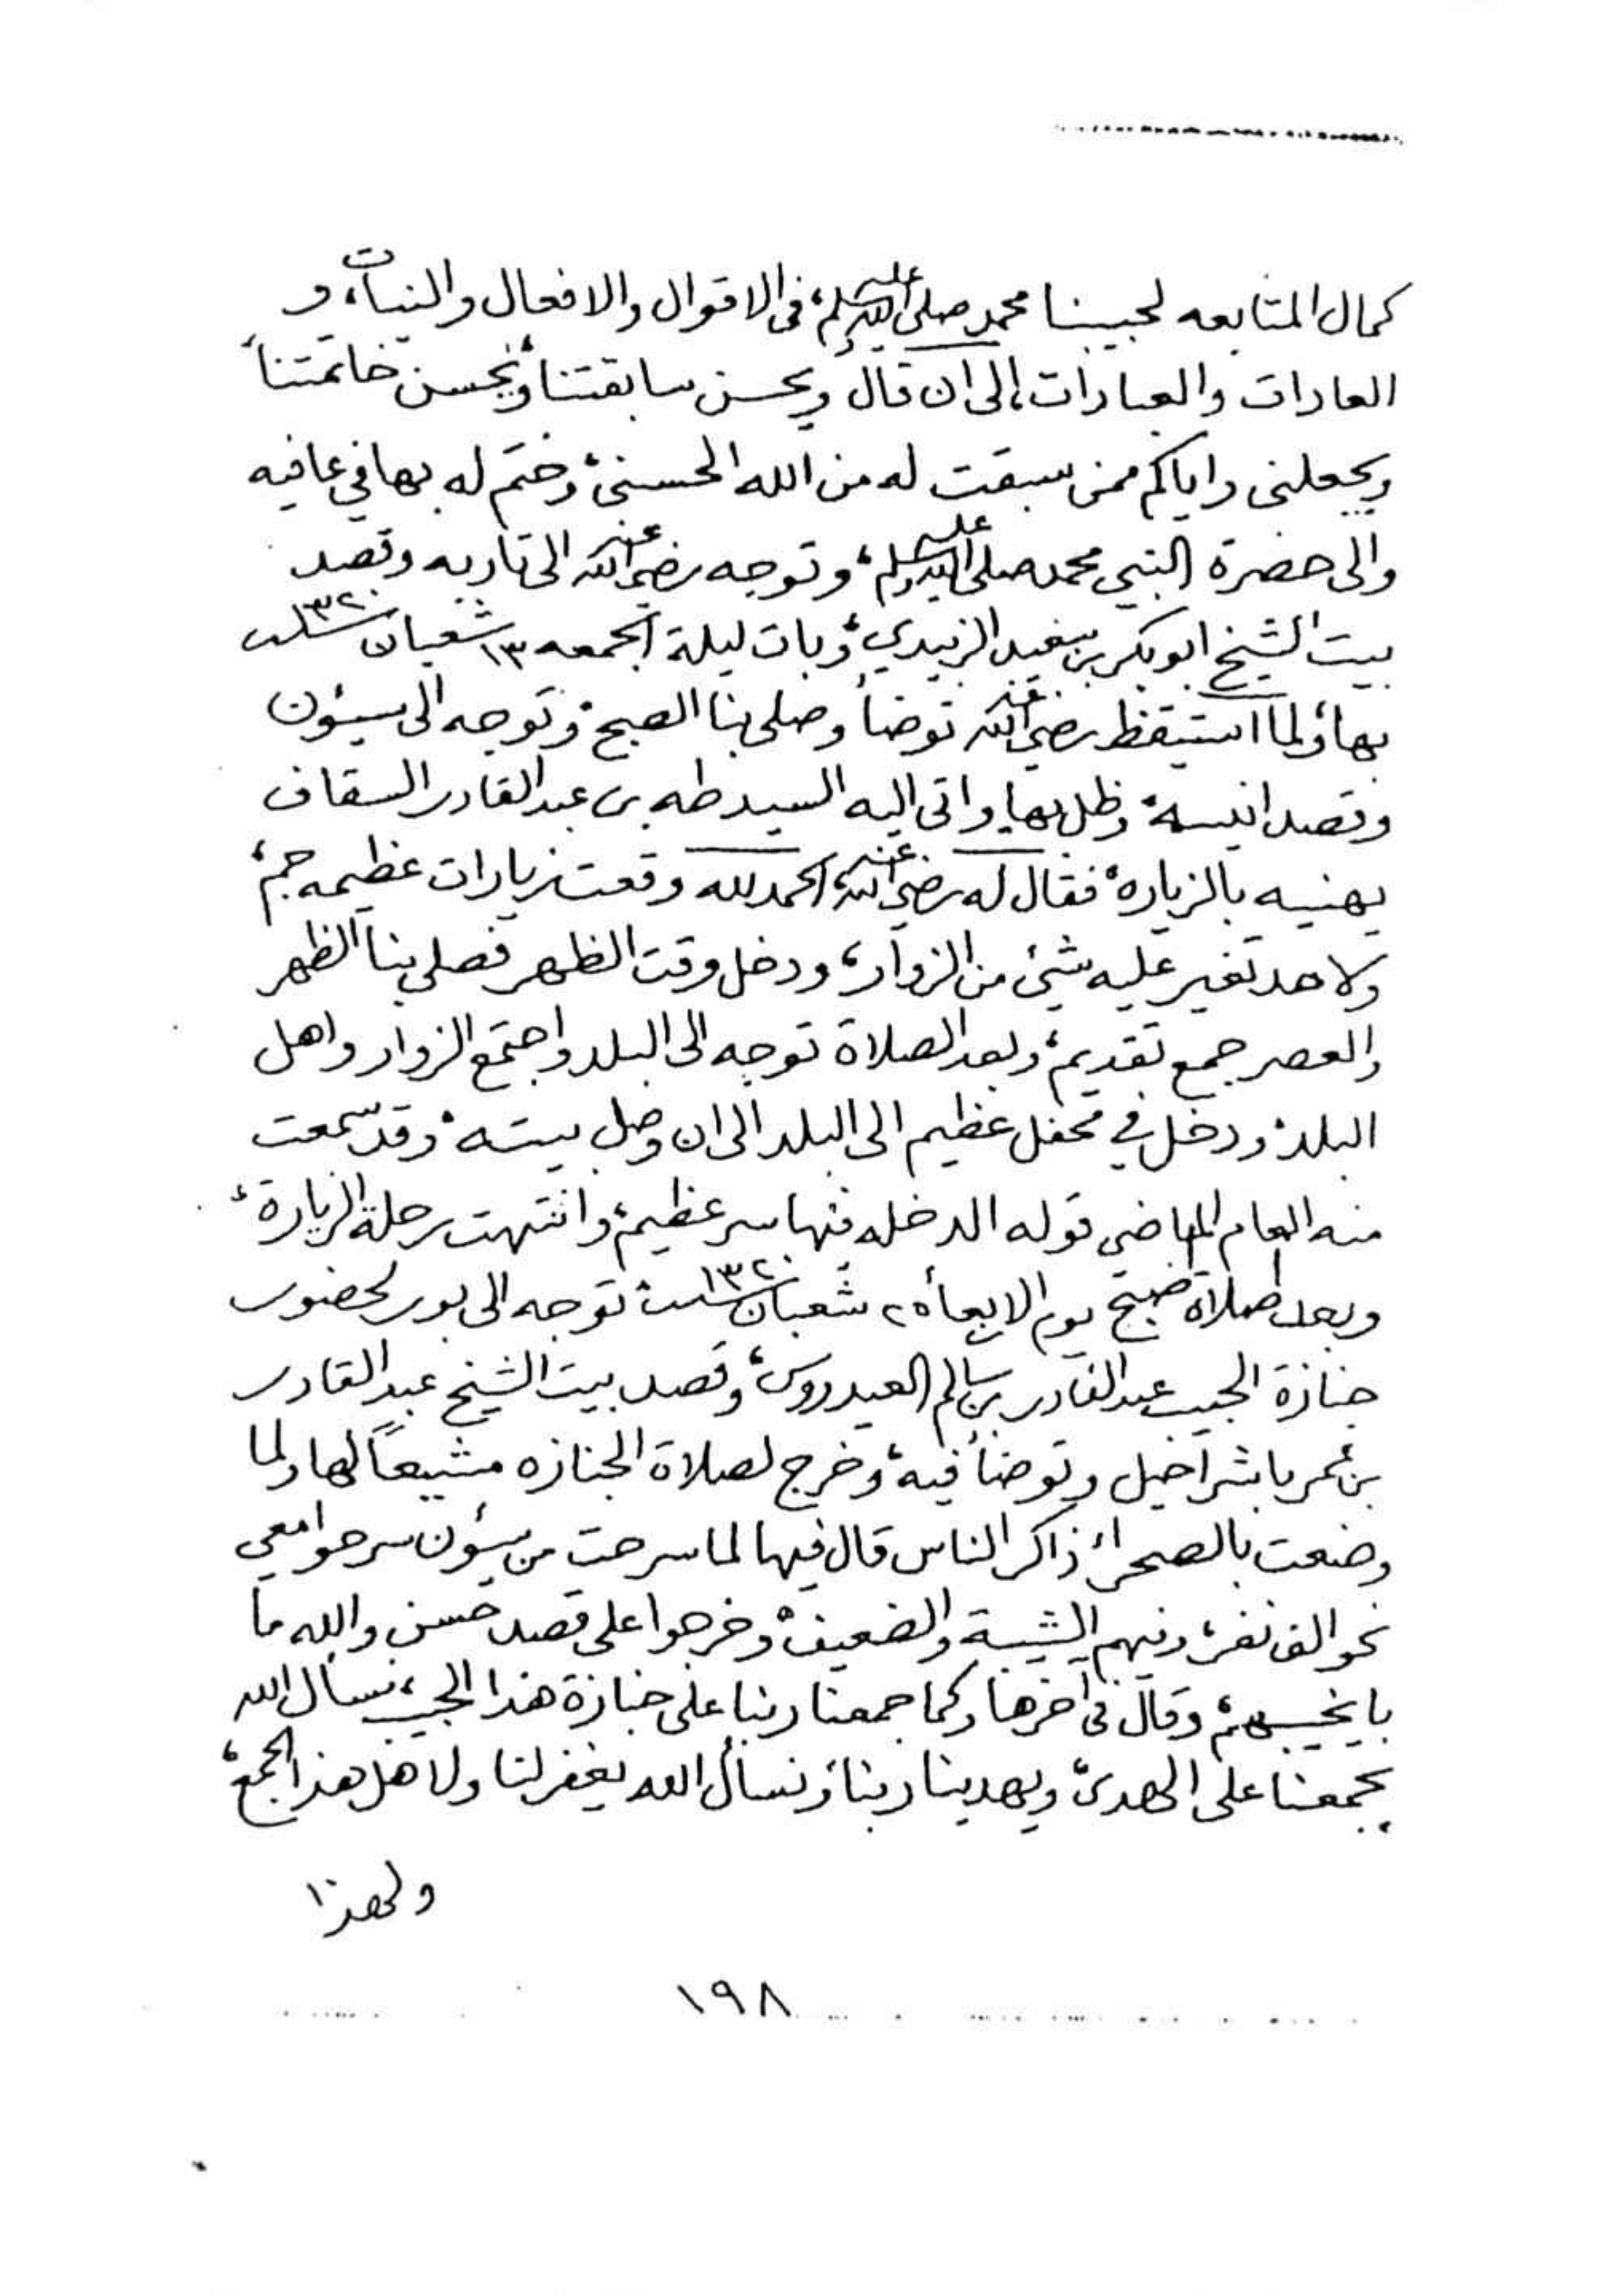 كمال المتابعه لحبيبنا محمد صلى الله عليه وسلم، في الاقوال والافعال والنيات، و
العادات والعبادات، الى ان قال ويحسن سابقتنا، ويحسن خاتمتنا،
ويجعلني واياكم ممن سبقت له من الله الحسنى، وختم له بها في عافيه
والى حضرة النبي محمد صلى الله عليه وسلم، وتوجه رضي الله عنه الى تاربه وقصد
بيت الشيخ ابوبكر بن سعيد الزبيدي، وبات ليلة الجمعه ١٣ شعبان سنة ١٣٢٠
بها، ولما استيقظ رضي الله عنه توضأ وصلى بنا الصبح، وتوجه الى سيئون
وقصد انيسه، وظل بها، واتى اليه السيد طه بن عبدالقادر السقاف
يهنيه بالزياره، فقال له رضي الله عنه، الحمدلله وقعت زيارات عظيمه جم،
ولا حد تغير عليه شيئ من الزوار، ودخل وقت الظهر فصلى بنا الظهر
والعصر جمع تقديم، وبعد الصلاة توجه الى البلد واجتمع الزوار واهل
البلد، ودخل في محفل عظيم الى البلد الى ان وصل بيته، وقد سمعت
منه العام الماضي قوله الدخله فيها سر عظيم، وانتهت رحلة الزيارة،
وبعد صلاة صبح يوم الاربعاء ٢٥ شعبان سنة ١٣٢٠ توجه الى بور لحضور
جنازة الحبيب عبدالقادر بن سالم العيدروس، وقصد بيت الشيخ عبدالقادر
بن عمر باشراحيل وتوضأ فيه، وخرج لصلاة الجنازه مشيعاً لها ولما
وضعت بالصحراء ذاكر الناس قال فيها لما سرحت من سيئون سرحوا معي
نحو الف نفر، وفيهم الشيبة والضعيف، وخرجوا على قصد حسن والله ما
بايخيبهم، وقال في آخرها وكما جمعنا ربنا على جنازة هذا الحبيب، نسأل الله
يجمعنا على الهدى، ويهدينا ربنا، ونسأل الله يغفر لنا ولاهل هذا الجمع،
ولهذا
١٩٨